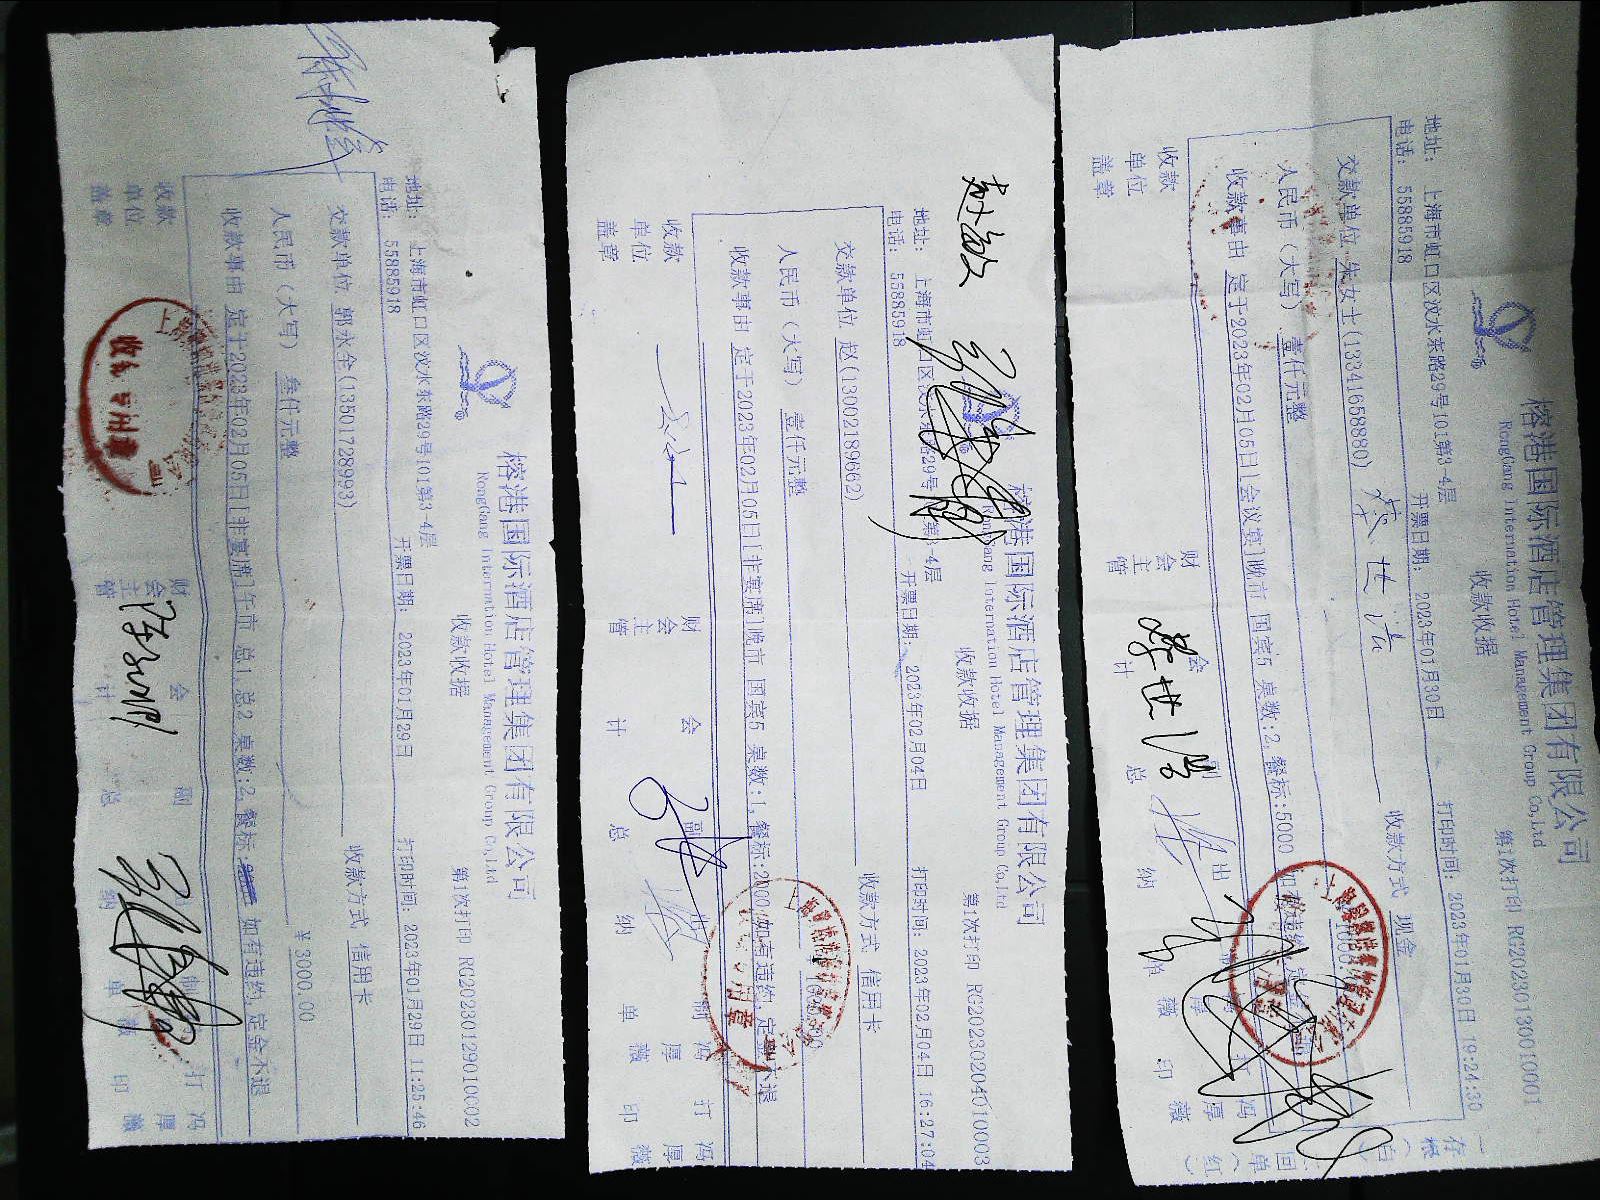 榕港国际酒店管理集团有限公司
RongGang Internation Hotel Management Group Co,Ltd
收款收据
第1次打印 RG20230129010002
地址： 上海市虹口区汶水东路29号101第3-4层
电话： 55885918
开票日期： 2023年01月29日
打印时间：2023年01月29日 11:25:46
交款单位 郭永全(13501728993)
收款方式 信用卡
人民币（大写） 叁仟元整
￥3000.00
收款事由 定于2023年02月05日[非宴席]午市 总1, 总2 桌数:2, 餐标: 如有违约, 定金不退
收款单位盖章
财会主管
会计
副总
出纳
制单
冯厚薇
打印
冯厚薇
榕港国际酒店管理集团有限公司
RongGang Internation Hotel Management Group Co,Ltd
收款收据
第1次打印 RG20230204010003
地址： 上海市虹口区汶水东路29号101第3-4层
电话： 55885918
开票日期： 2023年02月04日
打印时间：2023年02月04日 16:27:04
交款单位 赵(13002189662)
收款方式 信用卡
人民币（大写） 壹仟元整
收款事由 定于2023年02月05日[非宴席]晚市 国宾5 桌数:1, 餐标:2000 如有违约, 定金不退
收款单位盖章
财会主管
会计
副总
出纳
制单
冯厚薇
打印
冯厚薇
榕港国际酒店管理集团有限公司
RongGang Internation Hotel Management Group Co,Ltd
收款收据
第1次打印 RG20230130010001
地址： 上海市虹口区汶水东路29号101第3-4层
电话： 55885918
开票日期： 2023年01月30日
打印时间：2023年01月30日 19:24:30
交款单位 朱女士(13341658880)
收款方式 现金
人民币（大写） 壹仟元整
收款事由 定于2023年02月05日[会议宴]晚市 国宾5 桌数:2, 餐标:5000 如有违约, 定金不退
收款单位盖章
财会主管
会计
副总
出纳
冯厚薇
打印
一存根（白）
二回单（红）